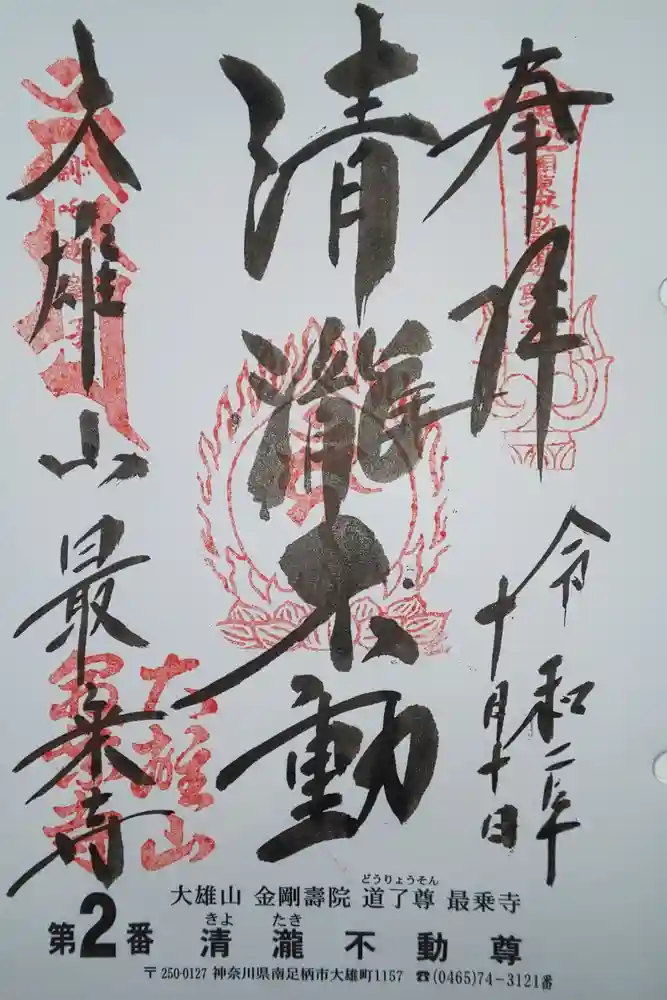 奉拝
令和二年
十月十日
清瀧不動
大雄山最乗寺
大雄山
最乗寺
大雄山 金剛壽院 道了尊 最乗寺
どうりょうそん
第2番 清瀧不動尊
きよ たき
〒250-0127 神奈川県南足柄市大雄町1157 ☎(0465)74-3121番